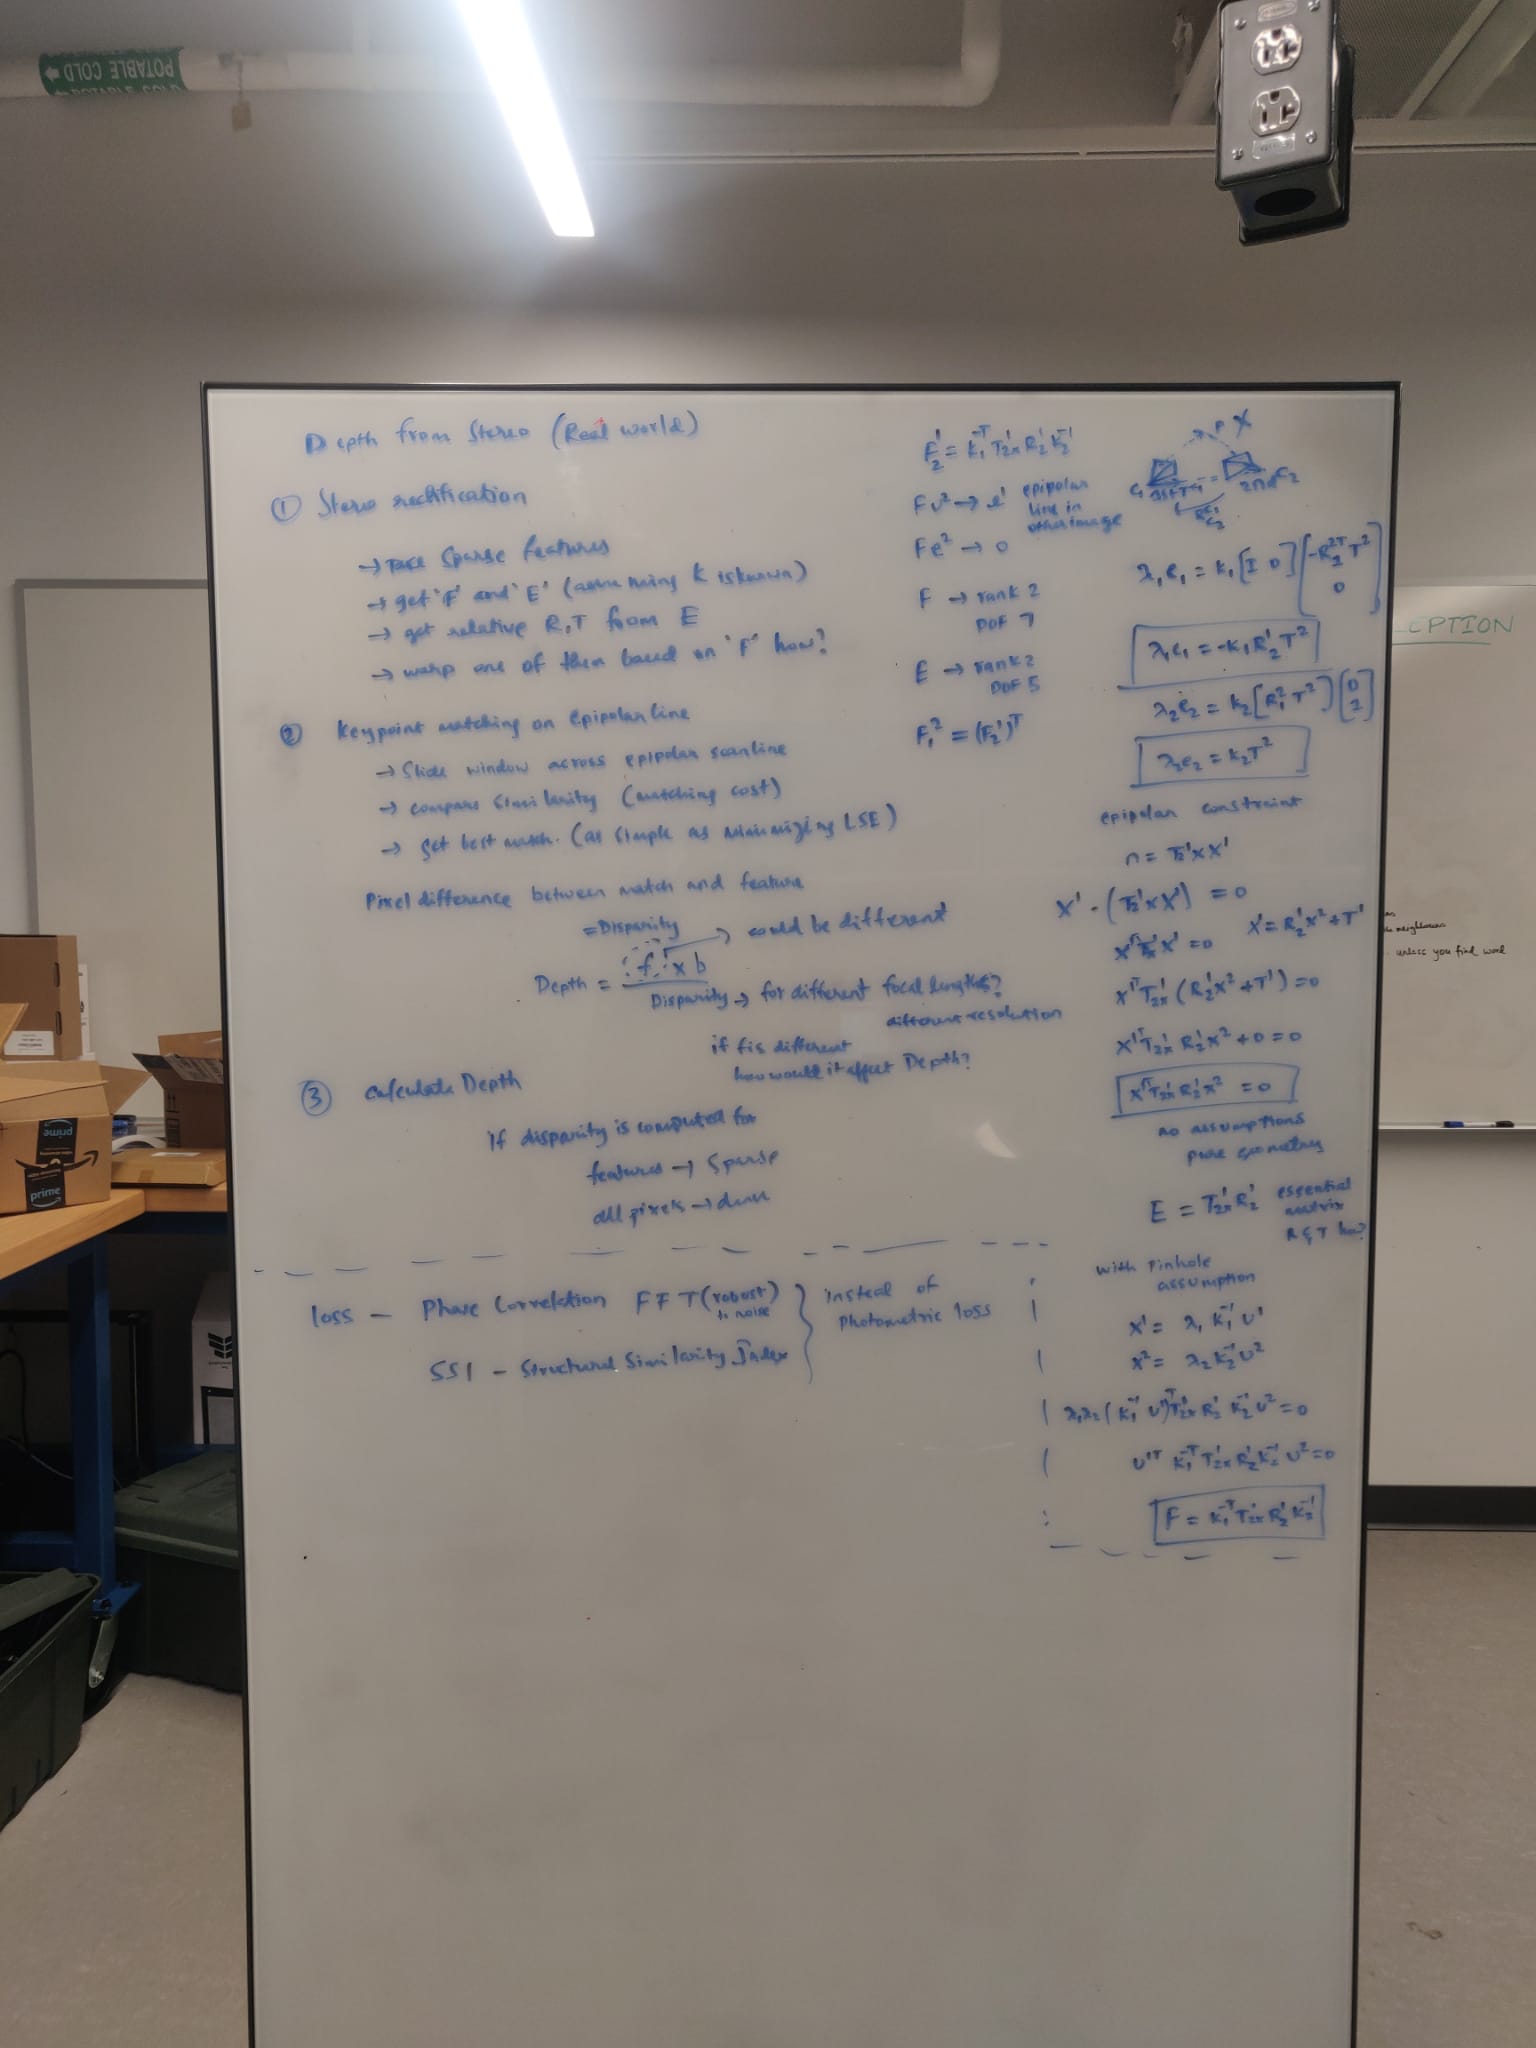 POTABLE COLD
Depth from Stereo (Real world)
① Stereo rectification
→ Take Sparse features
→ get 'F' and 'E' (assuming K is known)
→ get relative R,T from E
→ warp one of them based on 'F' how?
② Keypoint matching on epipolar line
→ Slide window across epipolar scanline
→ compare similarity (matching cost)
→ get best match. (as simple as minimizing LSE)
Pixel difference between match and feature
= Disparity
→ could be different
Depth = f x b / Disparity → for different focal lengths?
different resolution
if f is different
how would it affect Depth?
③ calculate Depth
If disparity is computed for
features → Sparse
all pixels → dense
loss – Phase Correlation FFT (robust to noise)
SSI – Structural Similarity Index
instead of
Photometric loss
F₂¹ = K₁⁻ᵀ T₂ₓ¹ R₂¹ K₂⁻¹
F u² → l¹ epipolar line in other image
F e² → 0
F → rank 2
DOF 7
E → rank 2
DOF 5
F₁² = (F₂¹)ᵀ
P X
λ₁e₁ = K₁ [I 0] [-R₁²ᵀ T² 0]
λ₁e₁ = -K₁ R₂¹ T²
λ₂e₂ = K₂ [R₁² T²]
λ₂e₂ = K₂T²
epipolar constraint
n = T₂¹ x X¹
X¹ · (T₂¹ x X¹) = 0
X¹ᵀ T₂ₓ¹ X¹ = 0
X¹ = R₂¹X² + T¹
X¹ᵀ T₂ₓ¹ (R₂¹X² + T¹) = 0
X¹ᵀ T₂ₓ¹ R₂¹ X² + 0 = 0
X¹ᵀ T₂ₓ¹ R₂¹ X² = 0
no assumptions
pure geometry
E = T₂ₓ¹ R₂¹ essential matrix
R & T how?
with Pinhole
assumption
X¹ = λ₁ K₁⁻¹ U¹
X² = λ₂ K₂⁻¹ U²
λ₁λ₂ (K₁⁻¹ U¹)ᵀ T₂ₓ¹ R₂¹ K₂⁻¹ U² = 0
U¹ᵀ K₁⁻ᵀ T₂ₓ¹ R₂¹ K₂⁻¹ U² = 0
F = K₁⁻ᵀ T₂ₓ¹ R₂¹ K₂⁻¹
EPTION
neighbours
unless you find work
prime
prime